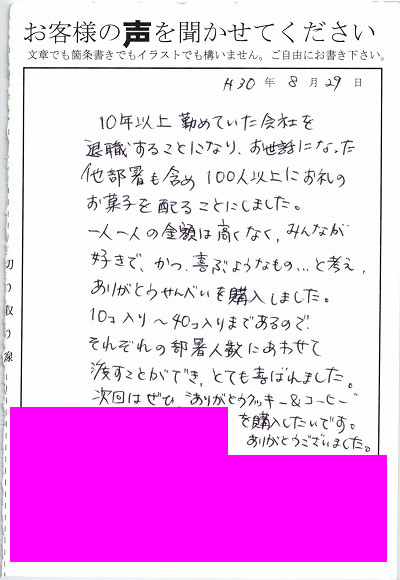 お客様の声を聞かせてください
文章でも箇条書きでもイラストでも構いません。ご自由にお書き下さい。
H30 年 8 月 29 日
10年以上 勤めていた会社を
退職することになり、お世話になった
他部署も含め 100人以上にお礼の
お菓子を配ることにしました。
一人一人の金額は高くなく、みんなが
好きで、かつ、喜ぶようなもの…と考え、
ありがとうせんべいを購入しました。
10コ入り～40コ入りまであるので、
それぞれの部署人数にあわせて
渡すことができ、とても喜ばれました。
次回はぜひ、"ありがとうクッキー＆コーヒー"
を購入したいです。
ありがとうございました。
切り取り線